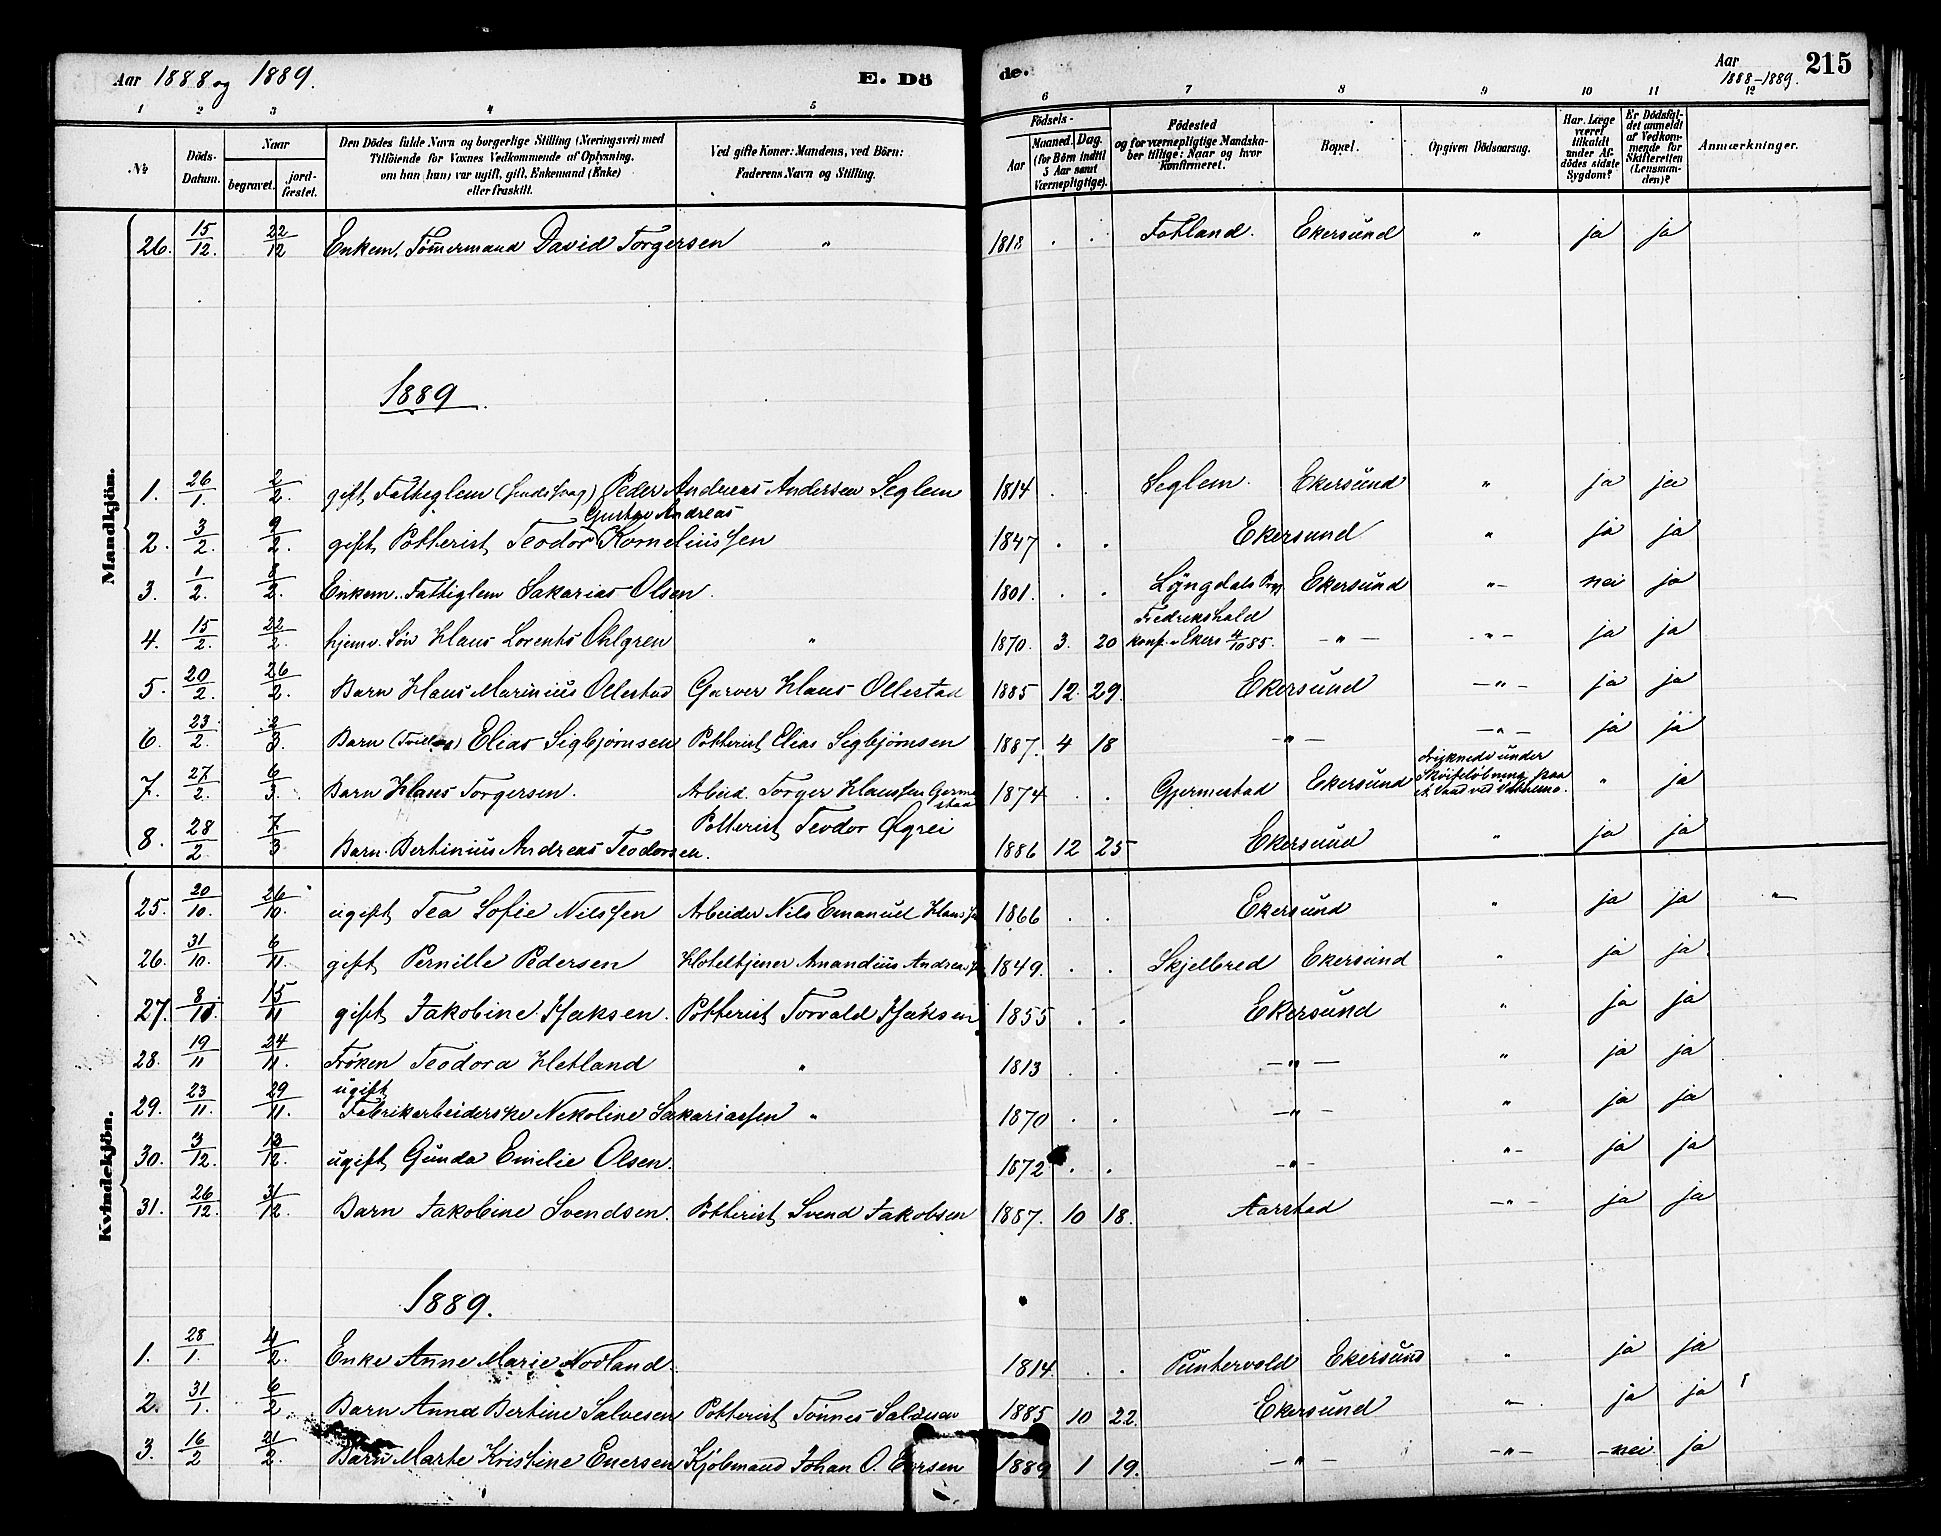 Aar 1888 og 1889.
E. Dö
de.
Aar
1888-1889.
215
1 2 3 4 5 6 7 8 9 10 11 12
No
Döds-
Datum.
Naar
begravet.
jord-
fæstet.
Den Dödes fulde Navn og borgerlige Stilling (Næringsvei) med
Tilföiende for Voxnes Vedkommende af Oplysning,
om han (hun) var ugift, gift, Enkemand (Enke)
eller fraskilt.
Ved gifte Koner: Mandens, ved Börn:
Faderens Navn og Stilling.
Födsels-
Aar
Maaned. Dag.
(for Börn indtil
5 Aar samt
Værnepligtige).
Födested
og for værnepligtige Mandska-
ber tillige: Naar og hvor
Konfirmeret.
Bopæl.
Opgiven Dödsaarsag.
Har Læge
været
tilkaldt
under Af-
dödes sidste
Sygdom?
Er Dödsfal-
det anmeldt
af Vedkom-
mende for
Skifteretten
(Lensman-
den)?
Anmærkninger.
Mandkjön.
26. 15/12. 22/12 Enkem. Tömermand David Torgersen " 1818 . . Fotland. Ekersund " ja ja
1889.
1. 26/1. 2/2. gift Fattiglem Peder Andreas Andersen Seglem 1814 . . Seglem. Ekersund " ja ja
Gustav Andreas
2. 3/2. 9/2. gift Potterist Teodor Kornelius sen 1847 . . Ekersund " ja ja
3. 1/2. 8/2. Enkem. Fattiglem Sakarias Olsen. 1801. . . Lyngdals Ekersund "- nei ja
4. 15/2. 22/2. hjemv. Søn Hans Lorents Øhlgren " 1870. 3. 20 Fredrikshald
konf. Ekers 4/10 85. -"- -"- ja ja
5. 20/2. 26/2. Barn Hans Marinius Ollestad Garver Hans Ollestad 1885 12. 29. Ekersund -"- ja ja
6. 23/2. 2/3. Barn (Tvilling) Elias Sigbjørnsen Potterist Elias Sigbjørnsen 1887. 4 18 -"- -"- ja ja
7. 27/2. 6/3. Barn Hans Torgersen. Arbeid. Torger Hanssen Germe
stad 1874 . . Gjermestad Ekersund druknede under
Skøiteløbning paa
" ja
8. 28/2. 7/3 Barn Bertinius Andreas Teodorsen. Potterist Teodor Øgrei 1886 12 25 Ekersund " ja ja
Kvindekjön.
25. 20/10. 26/10. ugift Tea Sofie Nilssen Arbeider Nils Emanuel Hanss 1866 . . Ekersund " ja ja "
26. 31/10. 6/11. gift Pernille Pedersen Hoteltjener Amandius Andreas 1849. . . Skjelbred Ekersund " ja ja
27. 8/11 15/11 gift Jakobine Isaksen. Potterist Torvald Isaksen 1855 . . Ekersund " ja ja
28. 19/11 24/11. Frøken Teodora Hetland " 1813 . . -"- " ja ja
29. 23/11. 29/11. ugift
Fabrikarbeiderske Nekoline Sakariassen " 1870 . . -"- " ja ja
30. 3/12. 13/12. ugift Gunda Emilie Olsen. 1872 . . -"- "- ja ja
31. 26/12. 31/12. Barn Jakobine Svendsen. Potterist Svend Jakobsen 1887. 10 18. Aarstad -"- ja ja
1889.
1. 28/1. 4/2. Enke Anne Marie Nodland. 1814. . . Puntervold Ekersund " ja ja
2. 31/1. 6/2. Barn Anna Bertine Salvesen Potterist Tønnes Salvesen 1885 10 22. Ekersund "- ja ja
3. 16/2 21/2. Barn Marte Kristine Enersen Kjøbmand Johan O. Enersen 1889 1 19. -"- -"- nei. ja